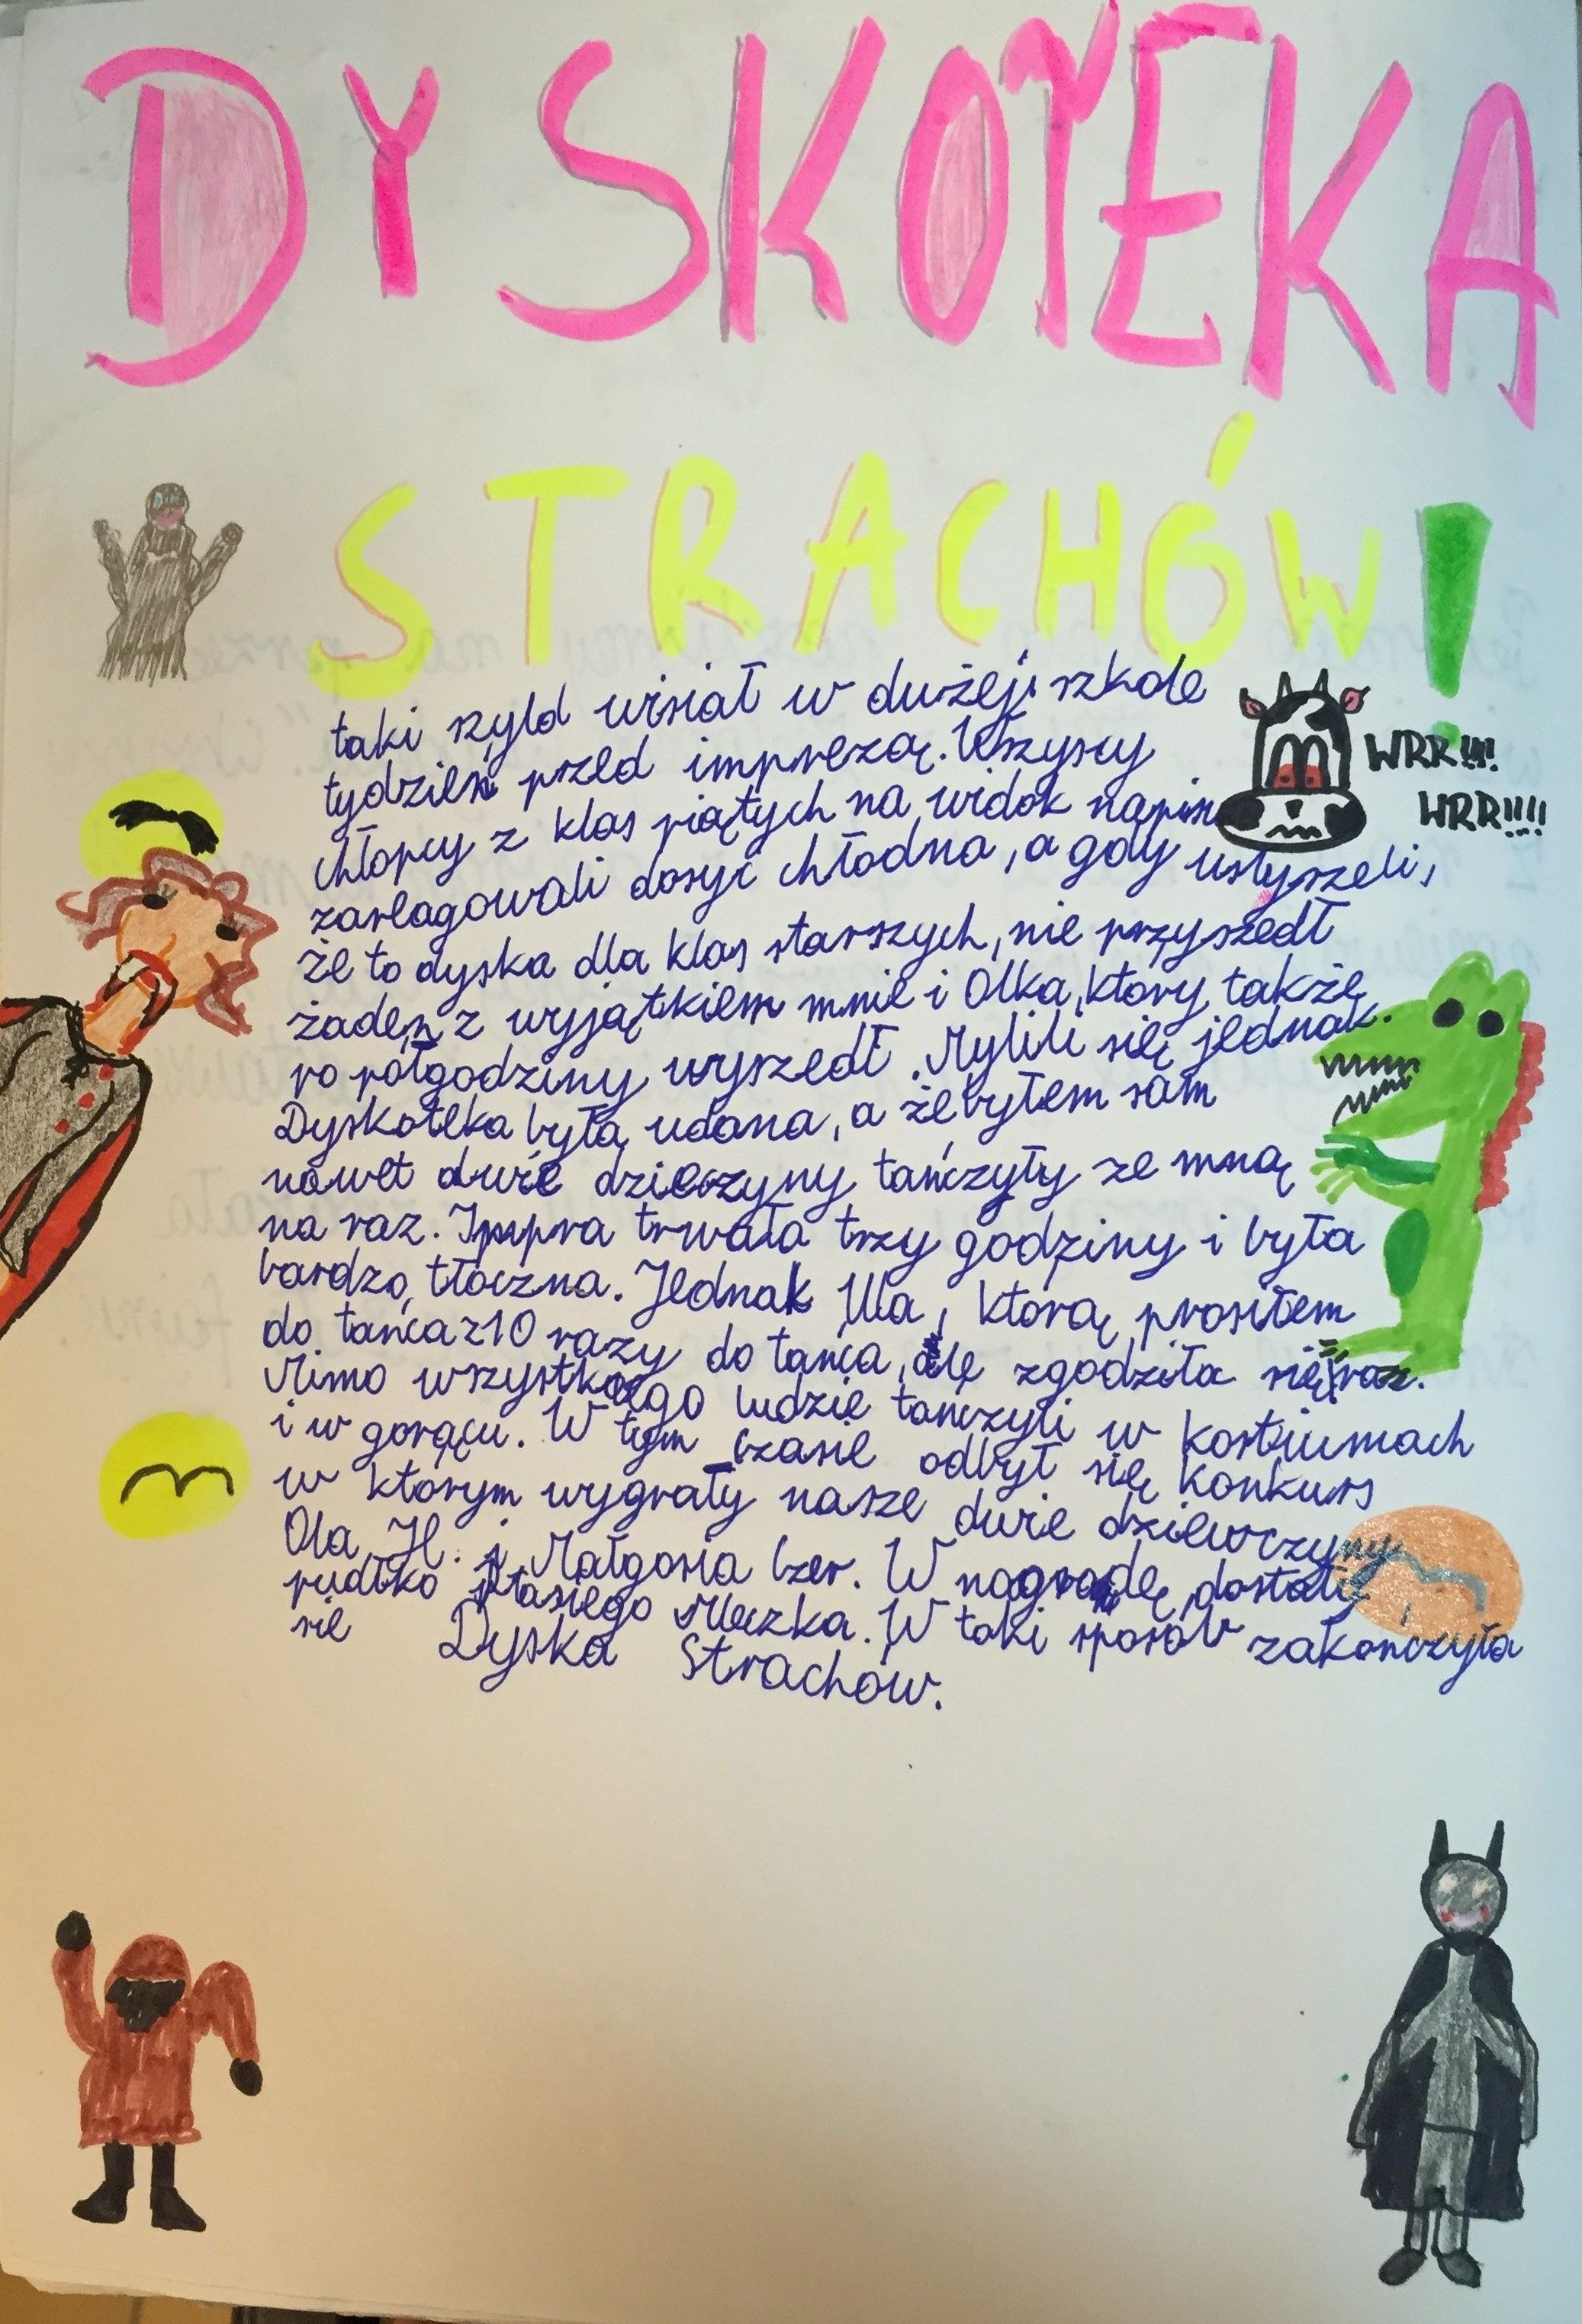 DYSKOTEKA
STRACHÓW!
taki szyld wisiał w dużej szkole
tydzień przed imprezą. Wszyscy
chłopcy z klas piątych na widok napisu
zareagowali dosyć chłodno, a gdy usłyszeli,
że to dyska dla klas starszych, nie przyszedł
żaden z wyjątkiem mnie i Olka, który także
po półgodziny wyszedł. Mylili się jednak.
Dyskoteka była udana, a że byłem sam
nawet dwie dzieczyny tańczyły ze mną
na raz. Impra trwała trzy godziny i była
bardzo tłoczna. Jednak Ula, którą prosiłem
do tańca z 10 razy do tańca, ale zgodziła się raz.
Mimo wszystkiego ludzie tańczyli w kostiumach
i w gorącu. W tym czasie odbył się konkurs
w którym wygrały nasze dwie dziewczyny
Ola H. i Małgosia Czer. W nagrodę dostały
pudełko ptasiego Mleczka. W taki sposób zakończyła
sie Dyska Strachów.
WRR!!!!
WRR!!!!